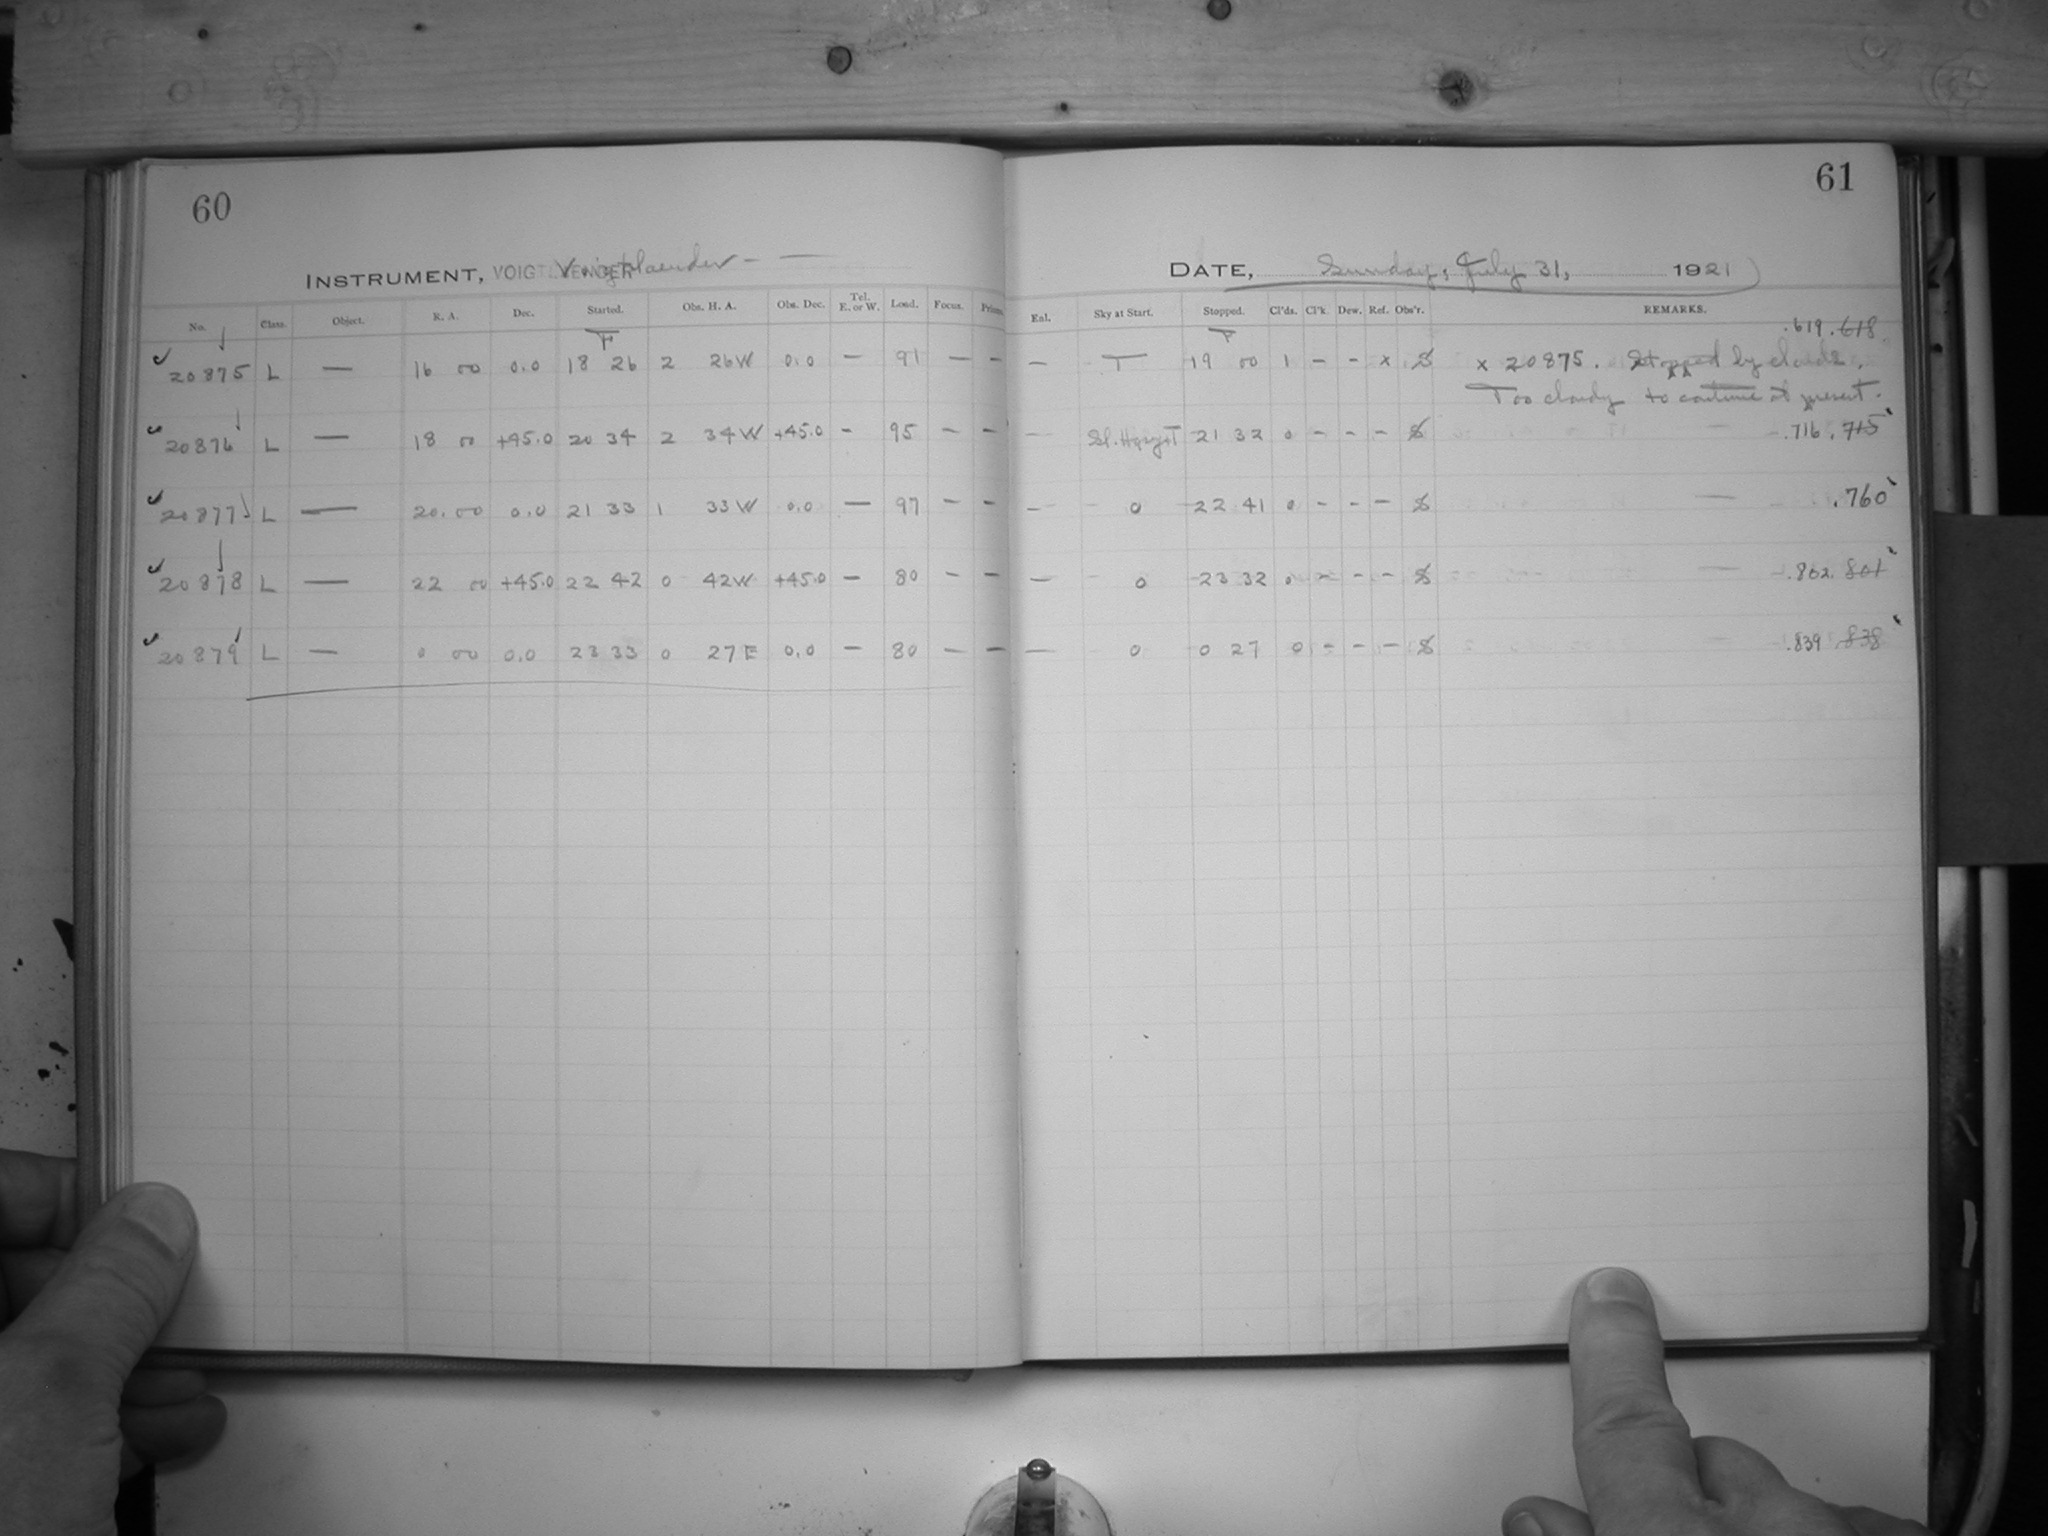 60
61
INSTRUMENT, VOIGTLAENDER Voigtlaender - —
DATE, Sunday, July 31, 1921
No. Class. Object. R. A. Dec. Started. Obs. H. A. Obs. Dec. Tel. E. or W. Load. Focus. Prism. Eal. Sky at Start. Stopped. Cl'ds. Cl'k. Dew. Ref. Obs'r. REMARKS.
.619 .618
20875 L — 16 00 0.0 18 26 2 26W 0.0 — 91 — — — T 19 00 1 - - x x 20875. Stopped by clouds.
Too cloudy to continue at present.
20876 L — 18 00 +45.0 20 34 2 34W +45.0 - 95 - - — 21 32 0 - - - .716 .715
20877 L — 20.00 0.0 21 33 1 33W 0.0 — 97 - - - 0 22 41 0 - - - — .760
20878 L — 22 00 +45.0 22 42 0 42W +45.0 - 80 - - — 0 23 32 0 - - - — .802 .801
20879 L — 0 00 0.0 23 33 0 27E 0.0 — 80 — — — 0 0 27 0 - - - .839 .838